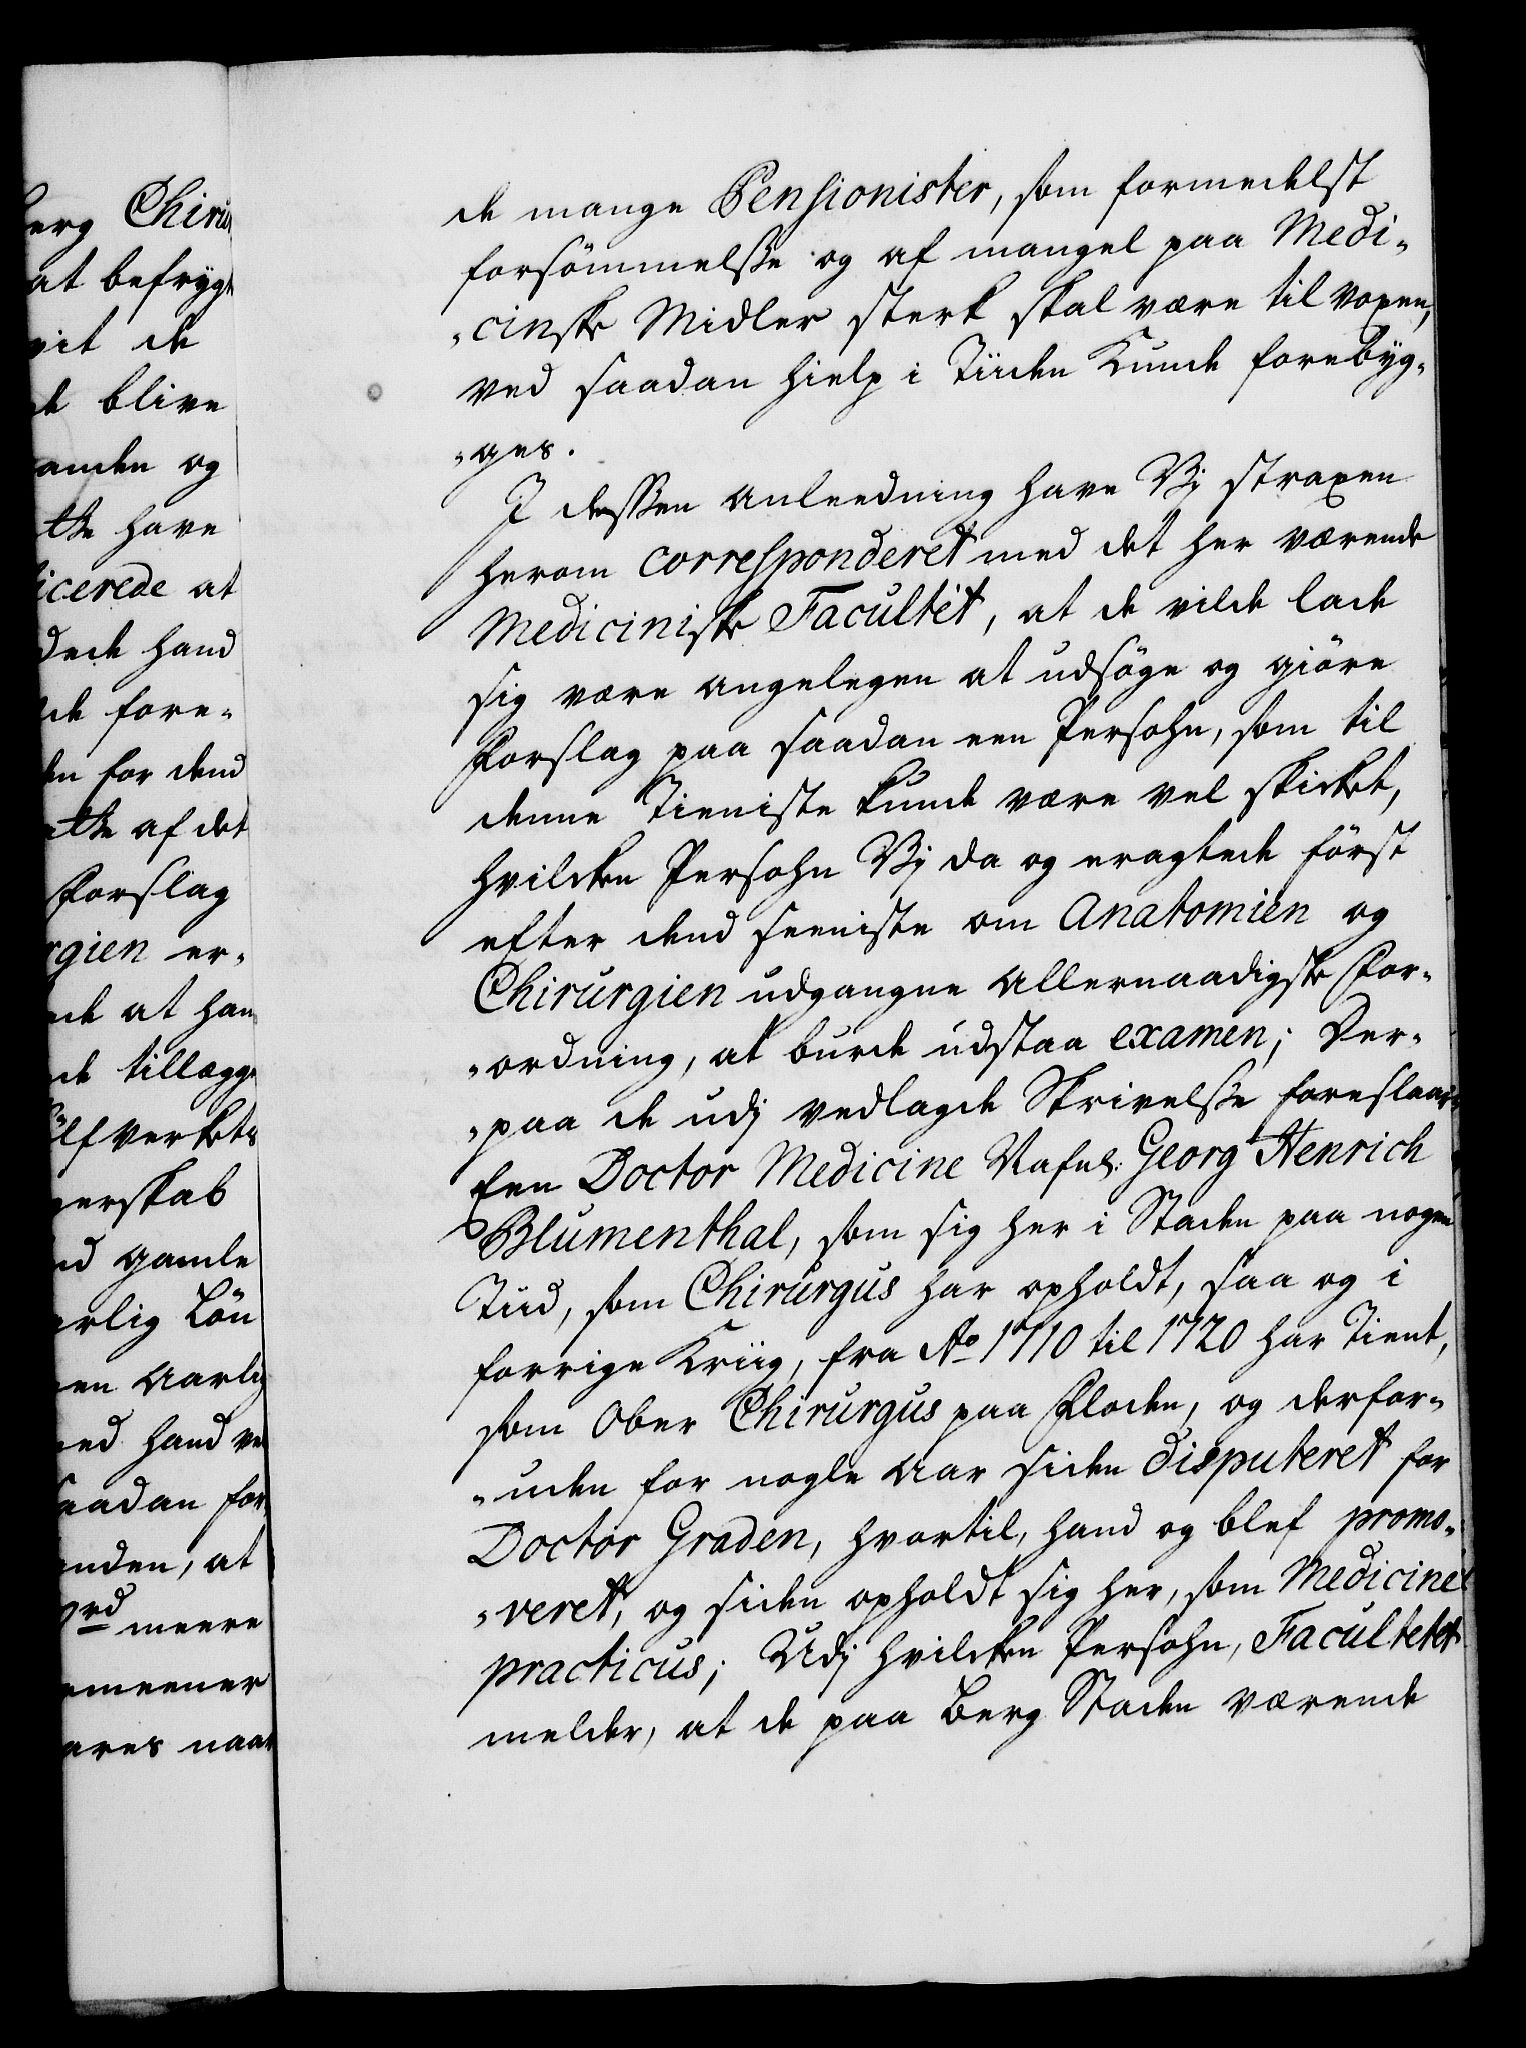 erg Chirur
at befrygt
vit de
de blive
anden og
tte have
icerede at
dede hand
de fore-
en for dend
ette af det
Forslag
rgien er-
nde at han
de tillægge
ölfverkets
nerskab
nd gamle
arlig Lön
en Aarlig
ed hand ve
aadan for
nden, at
ord meere
emeener
eres naar
de mange Pensionister, som formedelst
forsömmelsse og af mangel paa Medi-
-cinske Midler sterk skal være til voxen,
ved saadan hielp i Tiiden Kunde forebyg-
-ges.
I dessen anleedning have Vj straxen
herom corresponderet med det her værende
Mediciniske Facultét, at de vilde lade
sig være angelegen at udsöge og giöre
Forslag paa saadan een Persohn, som til
denne Tieniste kunde være vel skicket,
hvilcken Persohn Vj da og eragtede först
efter dend seeniste om Anatomien og
Chirurgien udgangne Allernaadigste For-
-ordning, at burde udstaa examen; Der-
-paa de udj vedlagde Skrivelsse foreslaar
Een Doctor Medicine Nafnl: Georg Henrich
Blumenthal, som sig her i Staden paa nogen
Tiid, som Chirurgus har opholdt, saa og i
forrige Kriig, fra Ao 1710 til 1720 har Tient,
som Ober Chirurgus paa Floden, og derfor-
-uden for nogle Aar siden disputeret for
Doctor Graden, hvortil, hand og blef promo-
-veret, og siden opholdt sig her, som Medicine
practicus; Udj hvilcken Persohn, Facultetet
melder, at de paa Berg Staden værende